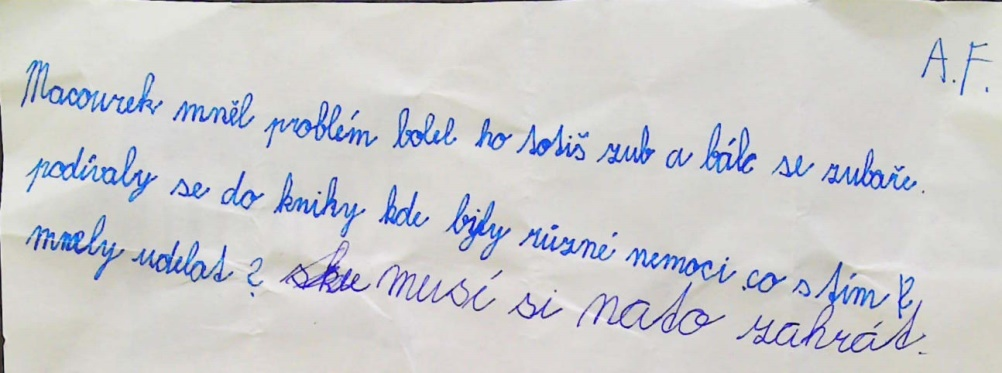 A.F.
Macourek mněl problém bolel ho totiš zub a bálc se zubaře.
podívaly se do kniky kde byly různé nemoci co s tím
mnely udelat? musí si nato zahrát.